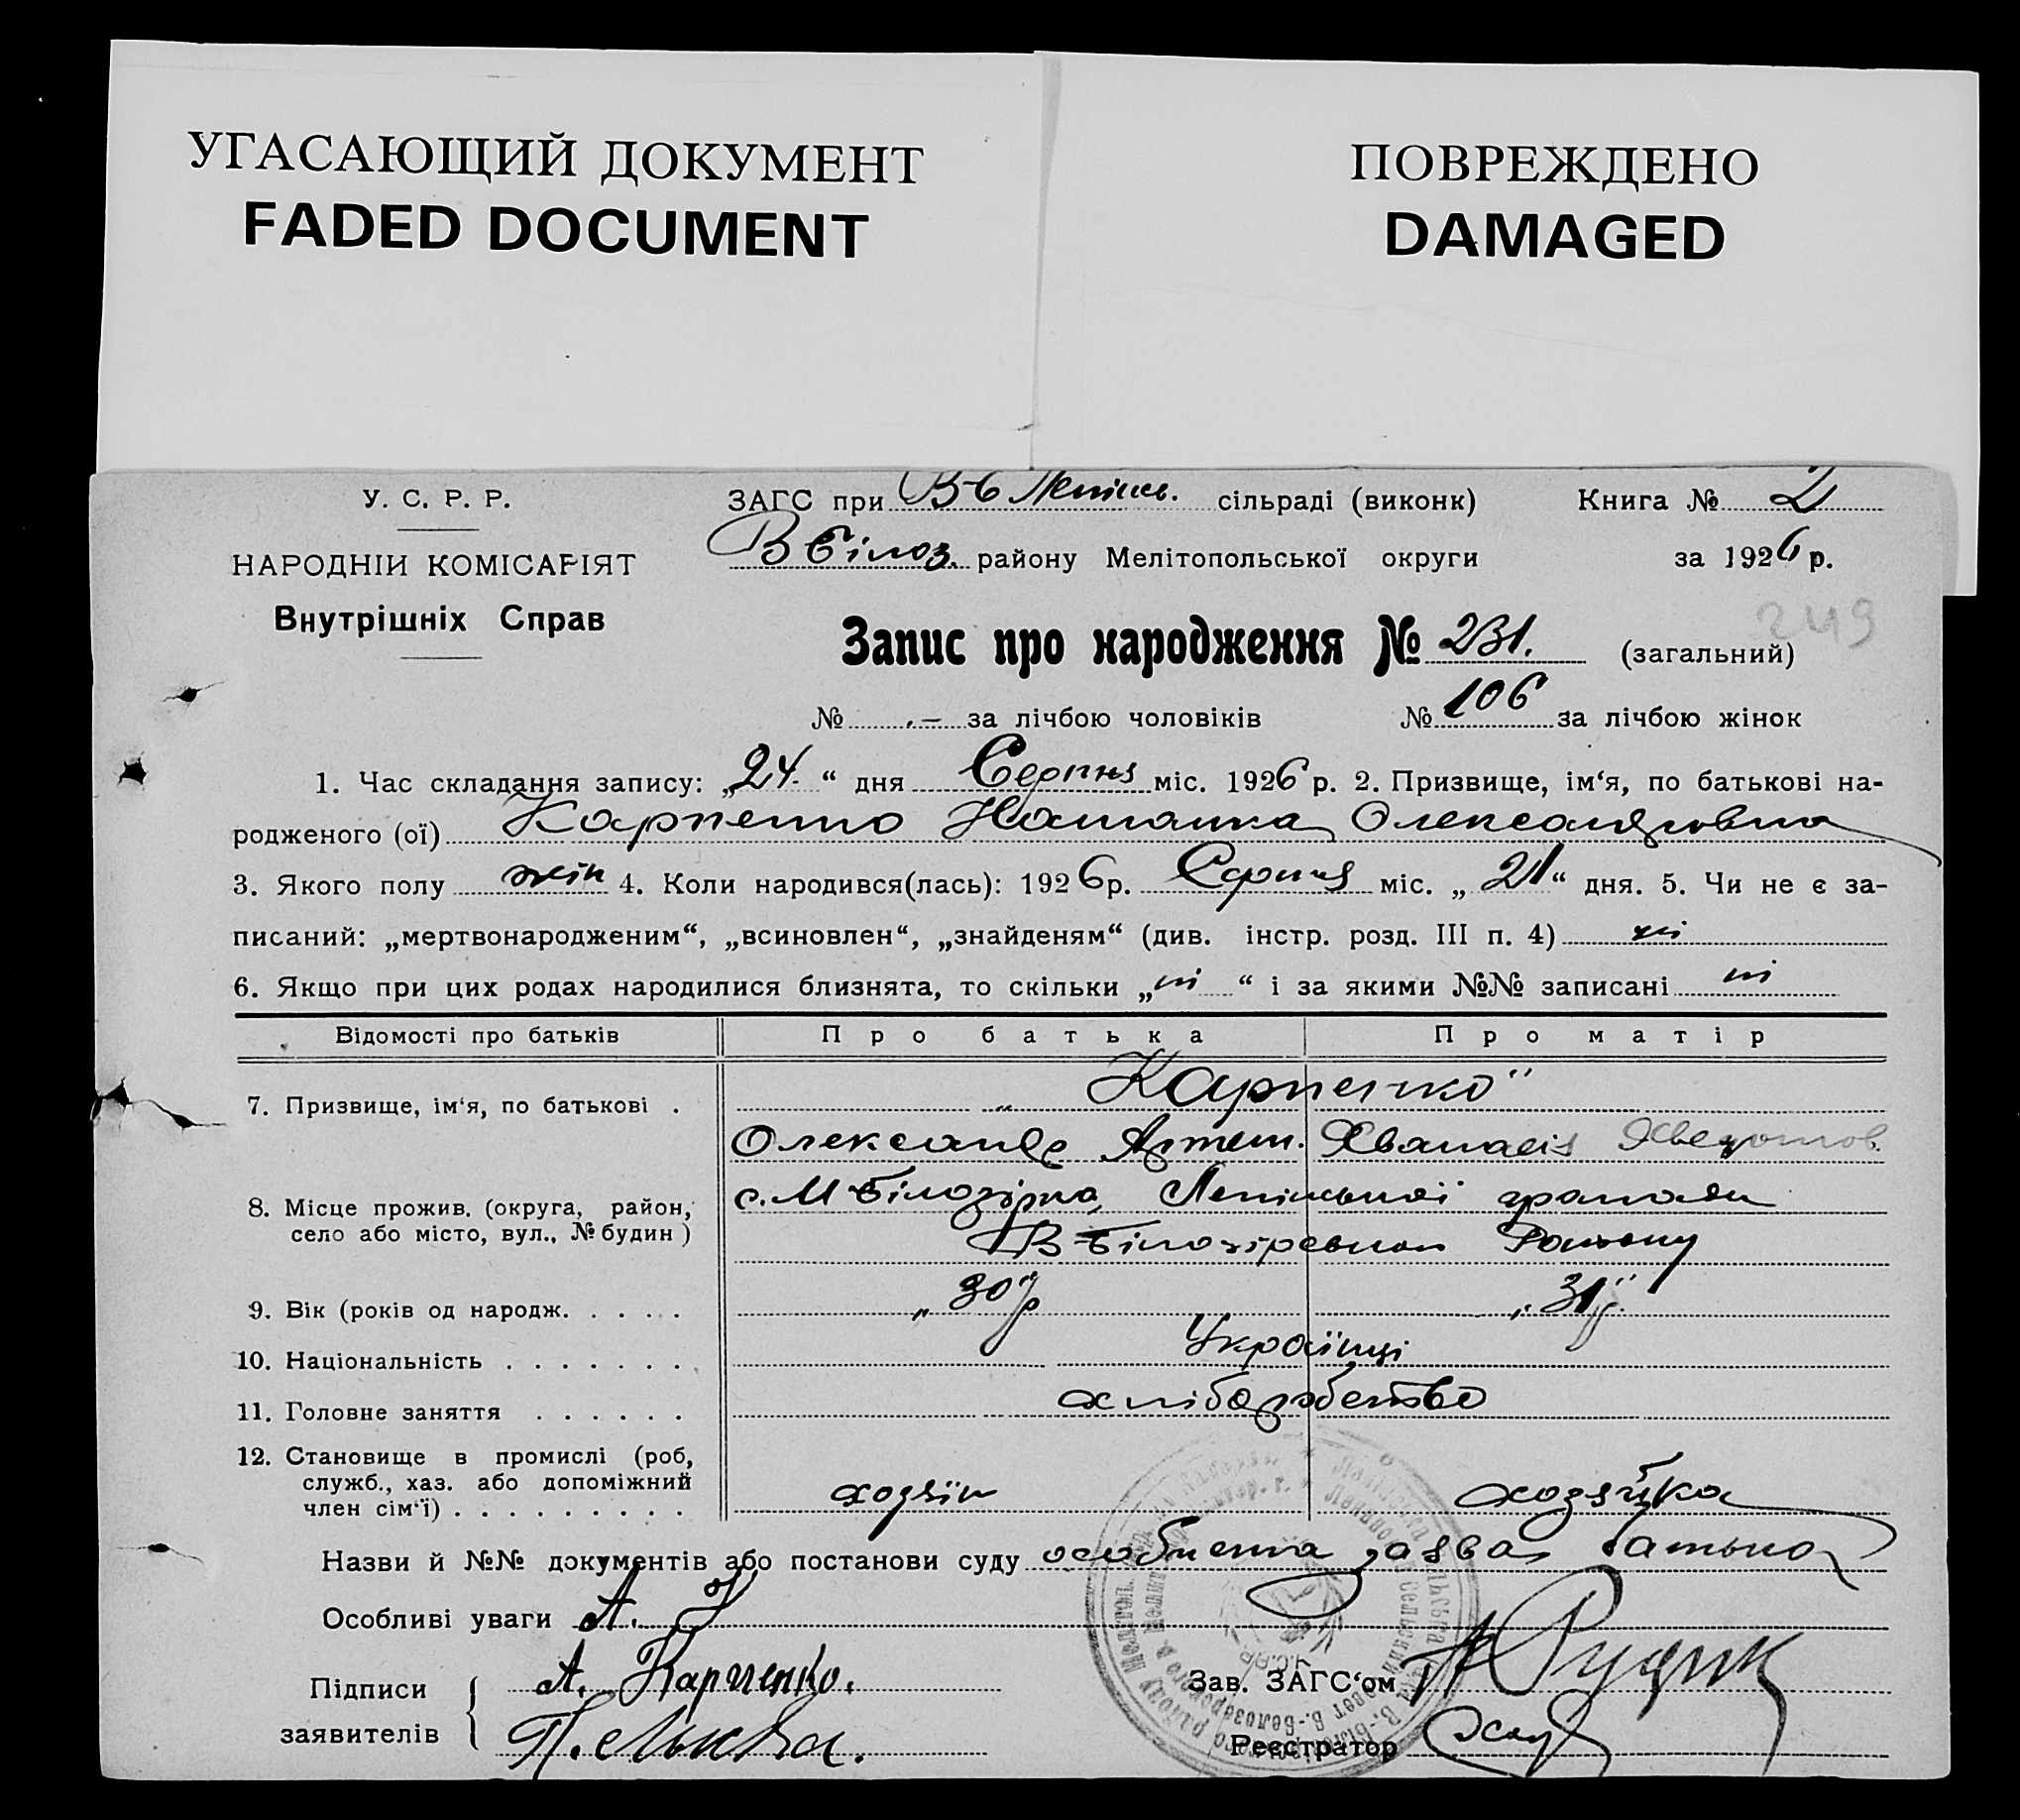 УГАСАЮЩИЙ ДОКУМЕНТ
FADED DOCUMENT
ПОВРЕЖДЕНО
DAMAGED
У. С. Р. Р.
НАРОДНІЙ КОМІСАРІЯТ
Внутрішніх Справ
ЗАГС при сільраді (виконк) Книга № 2
В Білоз. району Мелітопольської округи за 1926 р.
249
Запис про народження № 231. (загальний)
№ - за лічбою чоловіків № 106 за лічбою жінок
1. Час складання запису: „24“ дня Серпня міс. 1926 р. 2. Призвище, ім‘я, по батькові на-
родженого (ої) Карпенко Наталка Олександровна
3. Якого полу жін 4. Коли народився(лась): 1926 р. Серпня міс. „21“ дня. 5. Чи не є за-
писаний: „мертвонародженим“, „всиновлен“, „знайденям“ (див. інстр. розд. III п. 4) ні
6. Якщо при цих родах народилися близнята, то скільки „ні“ і за якими №№ записані ні
Відомості про батьків Про батька Про матір
7. Призвище, ім‘я, по батькові . „Карпенко"
Олександр Артем. Хванасія Хведотов.
8. Місце прожив. (округа, район, с. М Білозірка, Ленінської громади
село або місто, вул., № будин) В Білозірского Району
9. Вік (років од народж. . . . . „30 р" „31 р."
10. Національність . . . . . . . Українці
11. Головне заняття . . . . . . хліборобство
12. Становище в промислі (роб,
служб., хаз. або допоміжний
член сім‘ї) . . . . . . . . . хозяїн хозяйка
Назви й №№ документів або постанови суду особиста заява батька
Особливі уваги А.
Підписи
заявителів
А. Карпенко.
Зав. ЗАГС‘ом А Рудик
Реєстратор